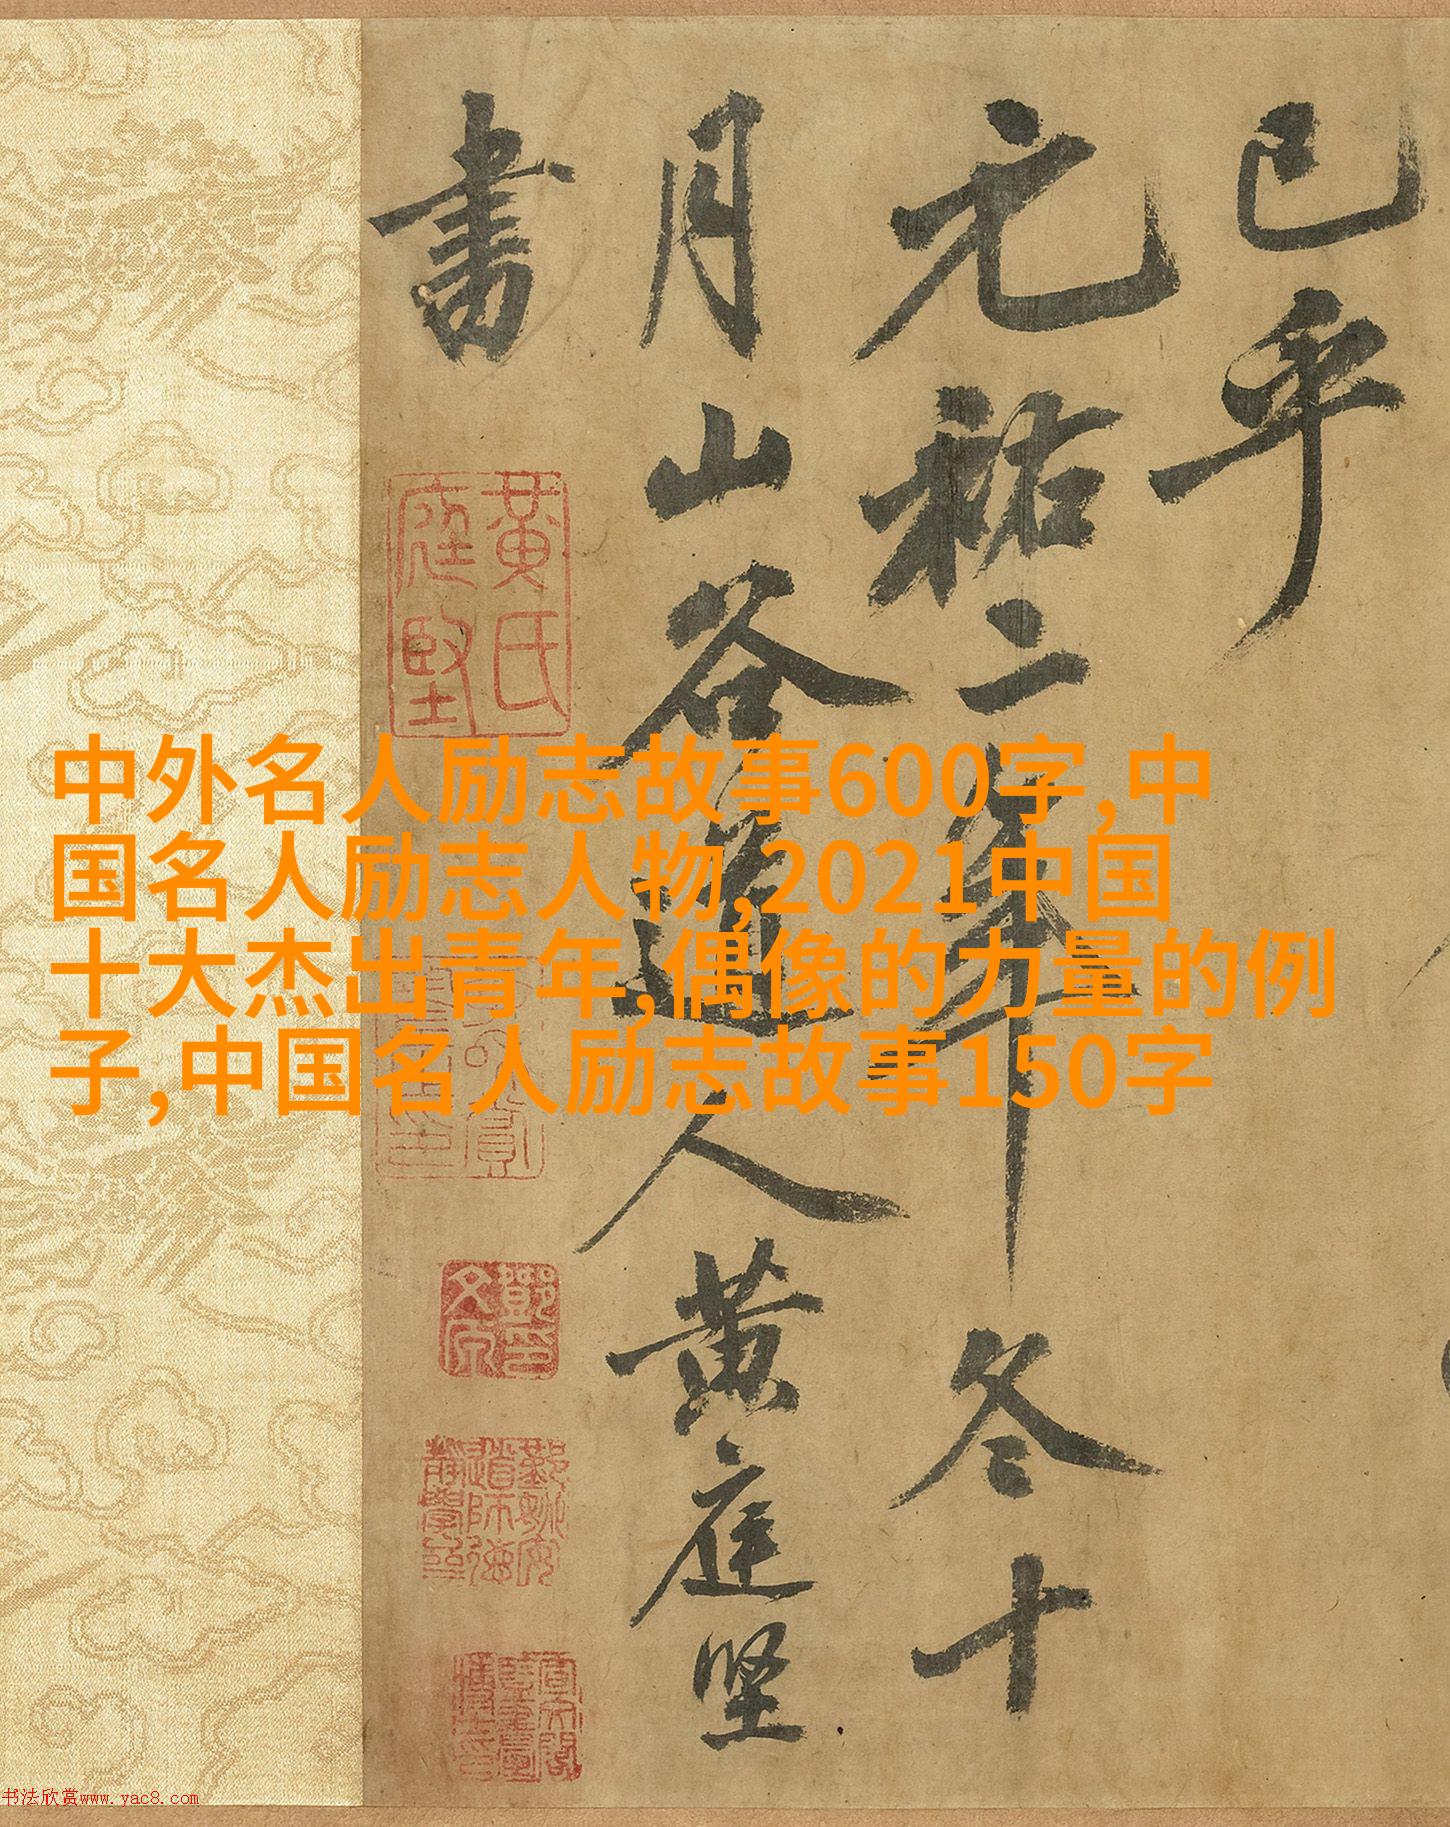 已乎
元祐二年冬十
月山谷道人黄庭堅
書
黄氏
庭堅
中外名人励志故事600字,中
国名人励志人物,2021中国
十大杰出青年,偶像的力量的例
子,中国名人励志故事150字
书法欣赏www.yac8.com